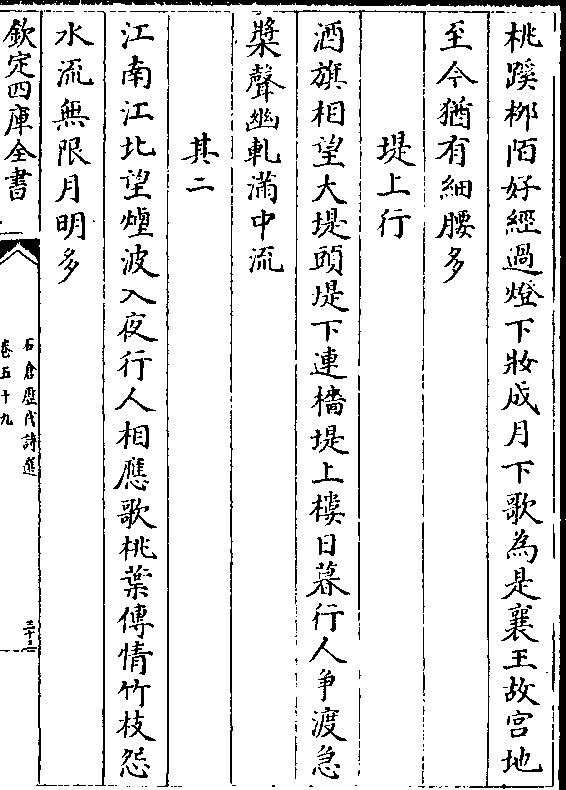 桃蹊栁陌好經過燈下妝成月下歌為是襄王故宫地
至今猶有細腰多
堤上行
酒旗相望大堤頭堤下連檣堤上樓日暮行人爭渡急
槳聲幽軋滿中流
其二
江南江北望煙波入夜行人相應歌桃葉傳情竹枝怨
水流無限月明多
欽定四庫全書
石倉歴代詩選
卷五十九
三十二